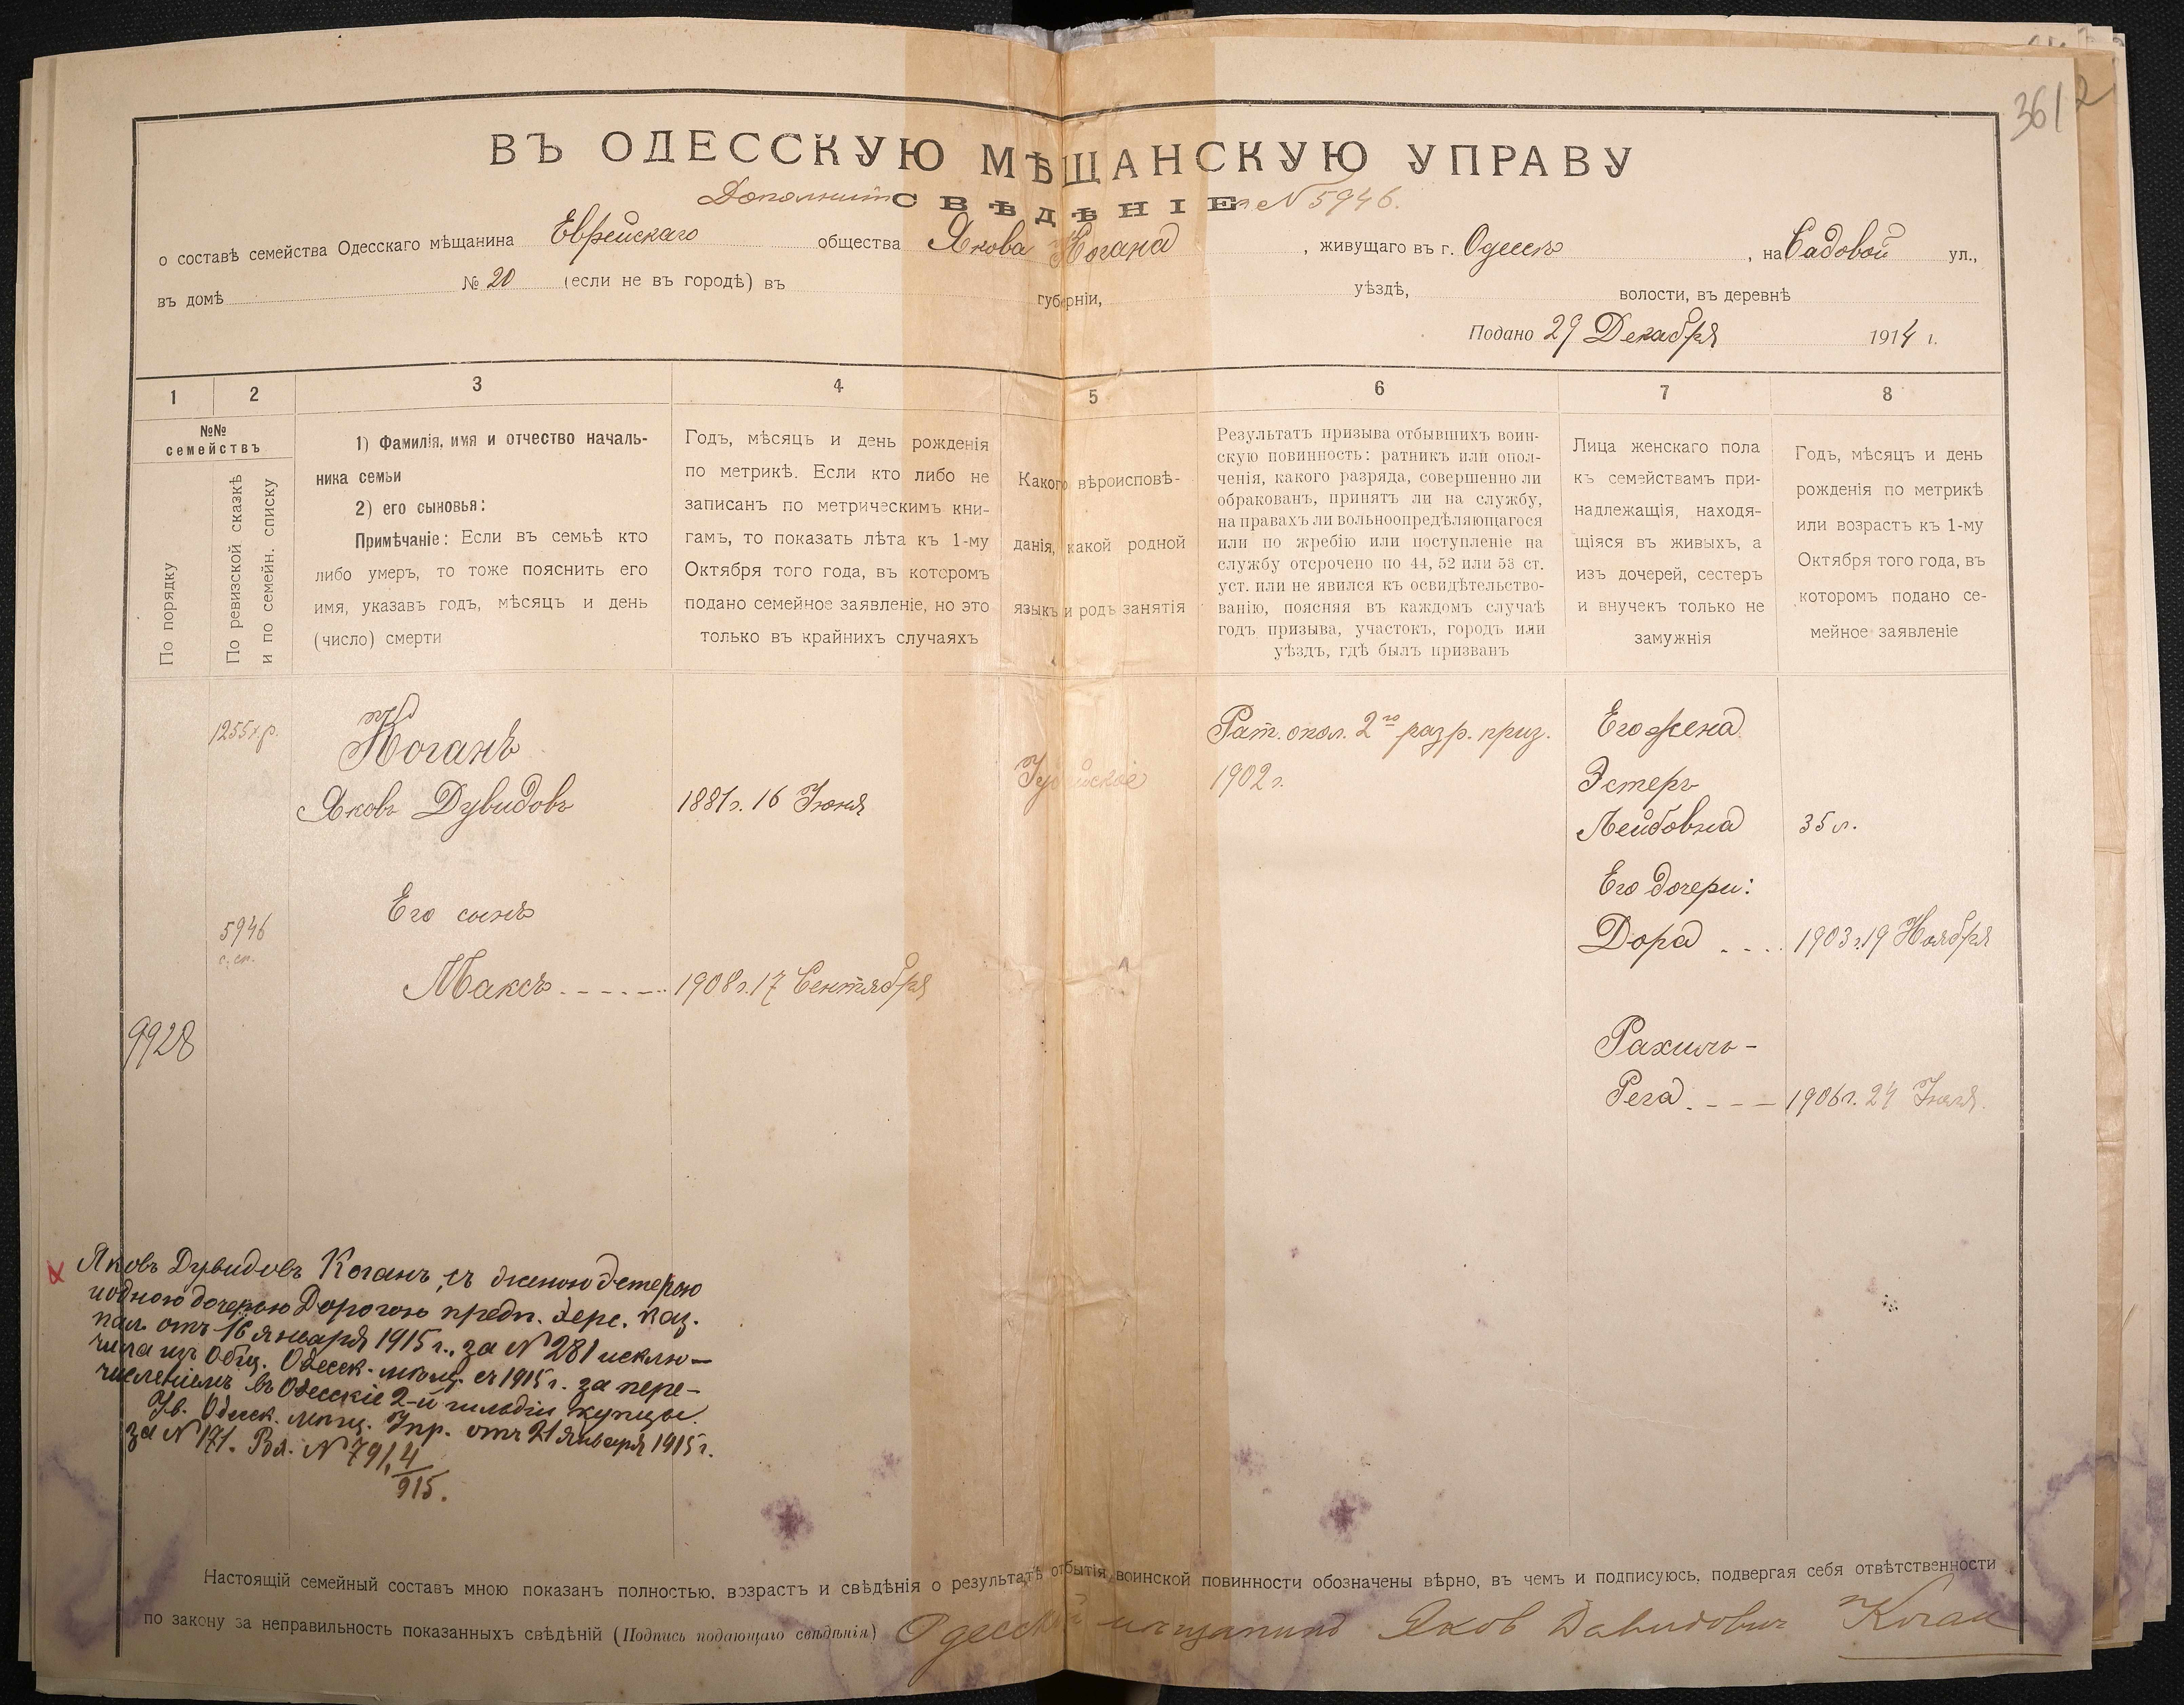 3612
ВЪ ОДЕССКУЮ МѢЩАНСКУЮ УПРАВУ
Дополнит СВѢДѢНІЕ № 5946.
о составѣ семейства Одесскаго мѣщанина Еврейскаго общества Якова Когана, живущаго въ г. Одессѣ, на Садовой ул.,
въ домѣ № 20 (если не въ городѣ) въ губерніи, уѣздѣ, волости, въ деревнѣ
Подано 29 Декабря 1914 г.
1 2 3 4 5 6 7 8
№№
семействъ
По порядку
По ревизской сказкѣ
и по семейн. списку
1) Фамилія, имя и отчество началь-
ника семьи
2) его сыновья:
Примѣчаніе: Если въ семьѣ кто
либо умеръ, то тоже пояснить его
имя, указавъ годъ, мѣсяцъ и день
(число) смерти
Годъ, мѣсяцъ и день рожденія
по метрикѣ. Если кто либо не
записанъ по метрическимъ кни-
гамъ, то показать лѣта къ 1-му
Октября того года, въ которомъ
подано семейное заявленіе, но это
только въ крайнихъ случаяхъ
Какого вѣроисповѣ-
данія, какой родной
языкъ и родъ занятія
Результатъ призыва отбывшихъ воин-
скую повинность: ратникъ или опол-
ченія, какого разряда, совершенно ли
обракованъ, принятъ ли на службу,
на правахъ ли вольноопредѣляющагося
или по жребію или поступленіе на
службу отсрочено по 44, 52 или 53 ст.
уст. или не явился къ освидѣтельство-
ванію, поясняя въ каждомъ случаѣ
годъ призыва, участокъ, городъ или
уѣздъ, гдѣ былъ призванъ
Лица женскаго пола
къ семействамъ при-
надлежащія, находя-
щіяся въ живыхъ, а
изъ дочерей, сестеръ
и внучекъ только не
замужнія
Годъ, мѣсяцъ и день
рожденія по метрикѣ
или возрастъ къ 1-му
Октября того года, въ
которомъ подано се-
мейное заявленіе
1255 х.р.
Коганъ
Яковъ Дувидовъ
1881 г. 16 Іюня
Іудейское
Рат. опол. 2го разр. приз.
1902 г.
Его жена
Эстеръ
Лейбовна 35 л.
Его дочери:
Дора 1903 г. 19 Ноября
5946
с. сп.
Его сынъ
Максъ 1908 г. 17 Сентября
9928
Рахиль-
Рега 1906 г. 24
Яковъ Дувидовъ Коганъ, съ женою Эстерою
и одною дочерью Дорогою предп. Херс. каз.
пал. отъ 16 января 1915 г., за № 281 исклю-
чена изъ Общ. Одесск. мѣщ. съ 1915 г. за пере-
численіемъ въ Одесскіе 2-й гильдіи купцы.
Ув. Одесск. мѣщ. Упр. отъ 21 Января 1915 г.
за № 171. Вх. № 791, 4
915.
Настоящій семейный составъ мною показанъ полностью, возрастъ и свѣдѣнія о результатѣ отбытія воинской повинности обозначены вѣрно, въ чемъ и подписуюсь, подвергая себя отвѣтственности
по закону за неправильность показанныхъ свѣдѣній (Подпись подающаго свѣдѣнія) Одесскій мещанинъ Яков Давидович Коган